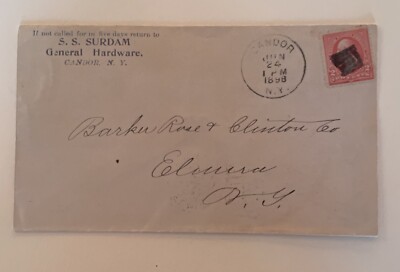 If not called for in five days return to
S. S. SURDAM
General Hardware.
CANDOR, N. Y.
CANDOR
JUN
24
1 PM
1898
N.Y.
Barker Rose & Clinton Co
Elmira
N. Y.